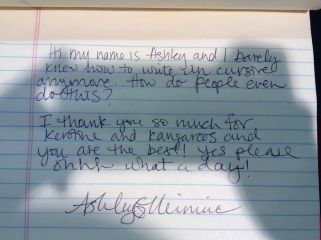 Hi my name is Ashley and I barely
know how to write in cursive
anymore. How do people even
do this?
I thank you so much for
and kangaroos and
you are the best! Yes please
ohhh what a day!
Ashley